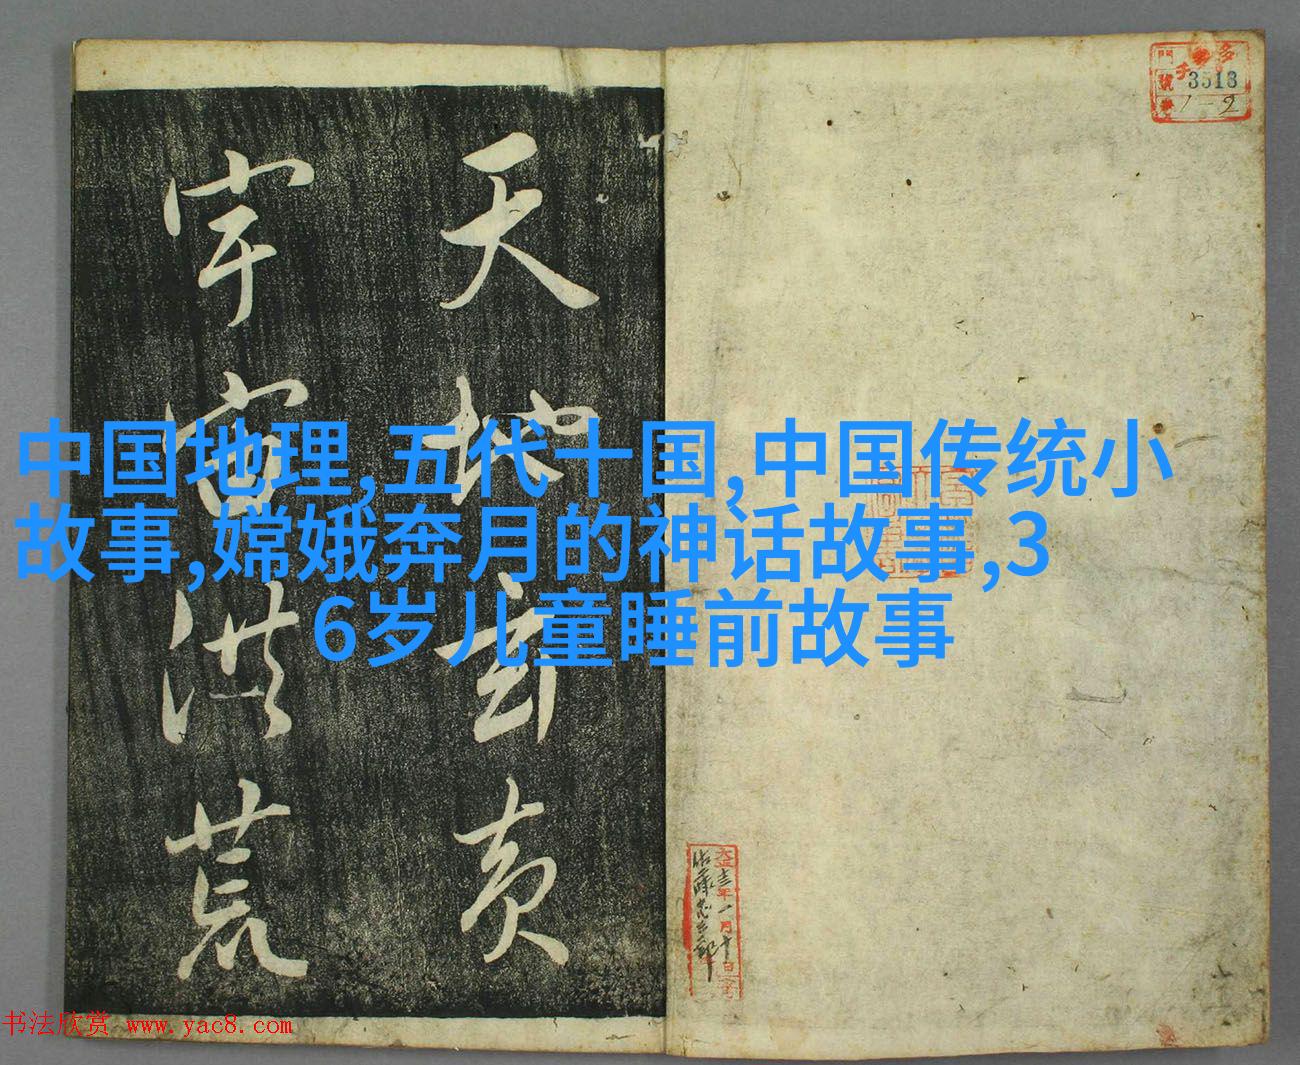 天地玄黄
宇宙洪荒
中国地理,五代十国,中国传统小
故事,嫦娥奔月的神话故事,3
6岁儿童睡前故事
3513
1-2
书法欣赏 www.yac8.com